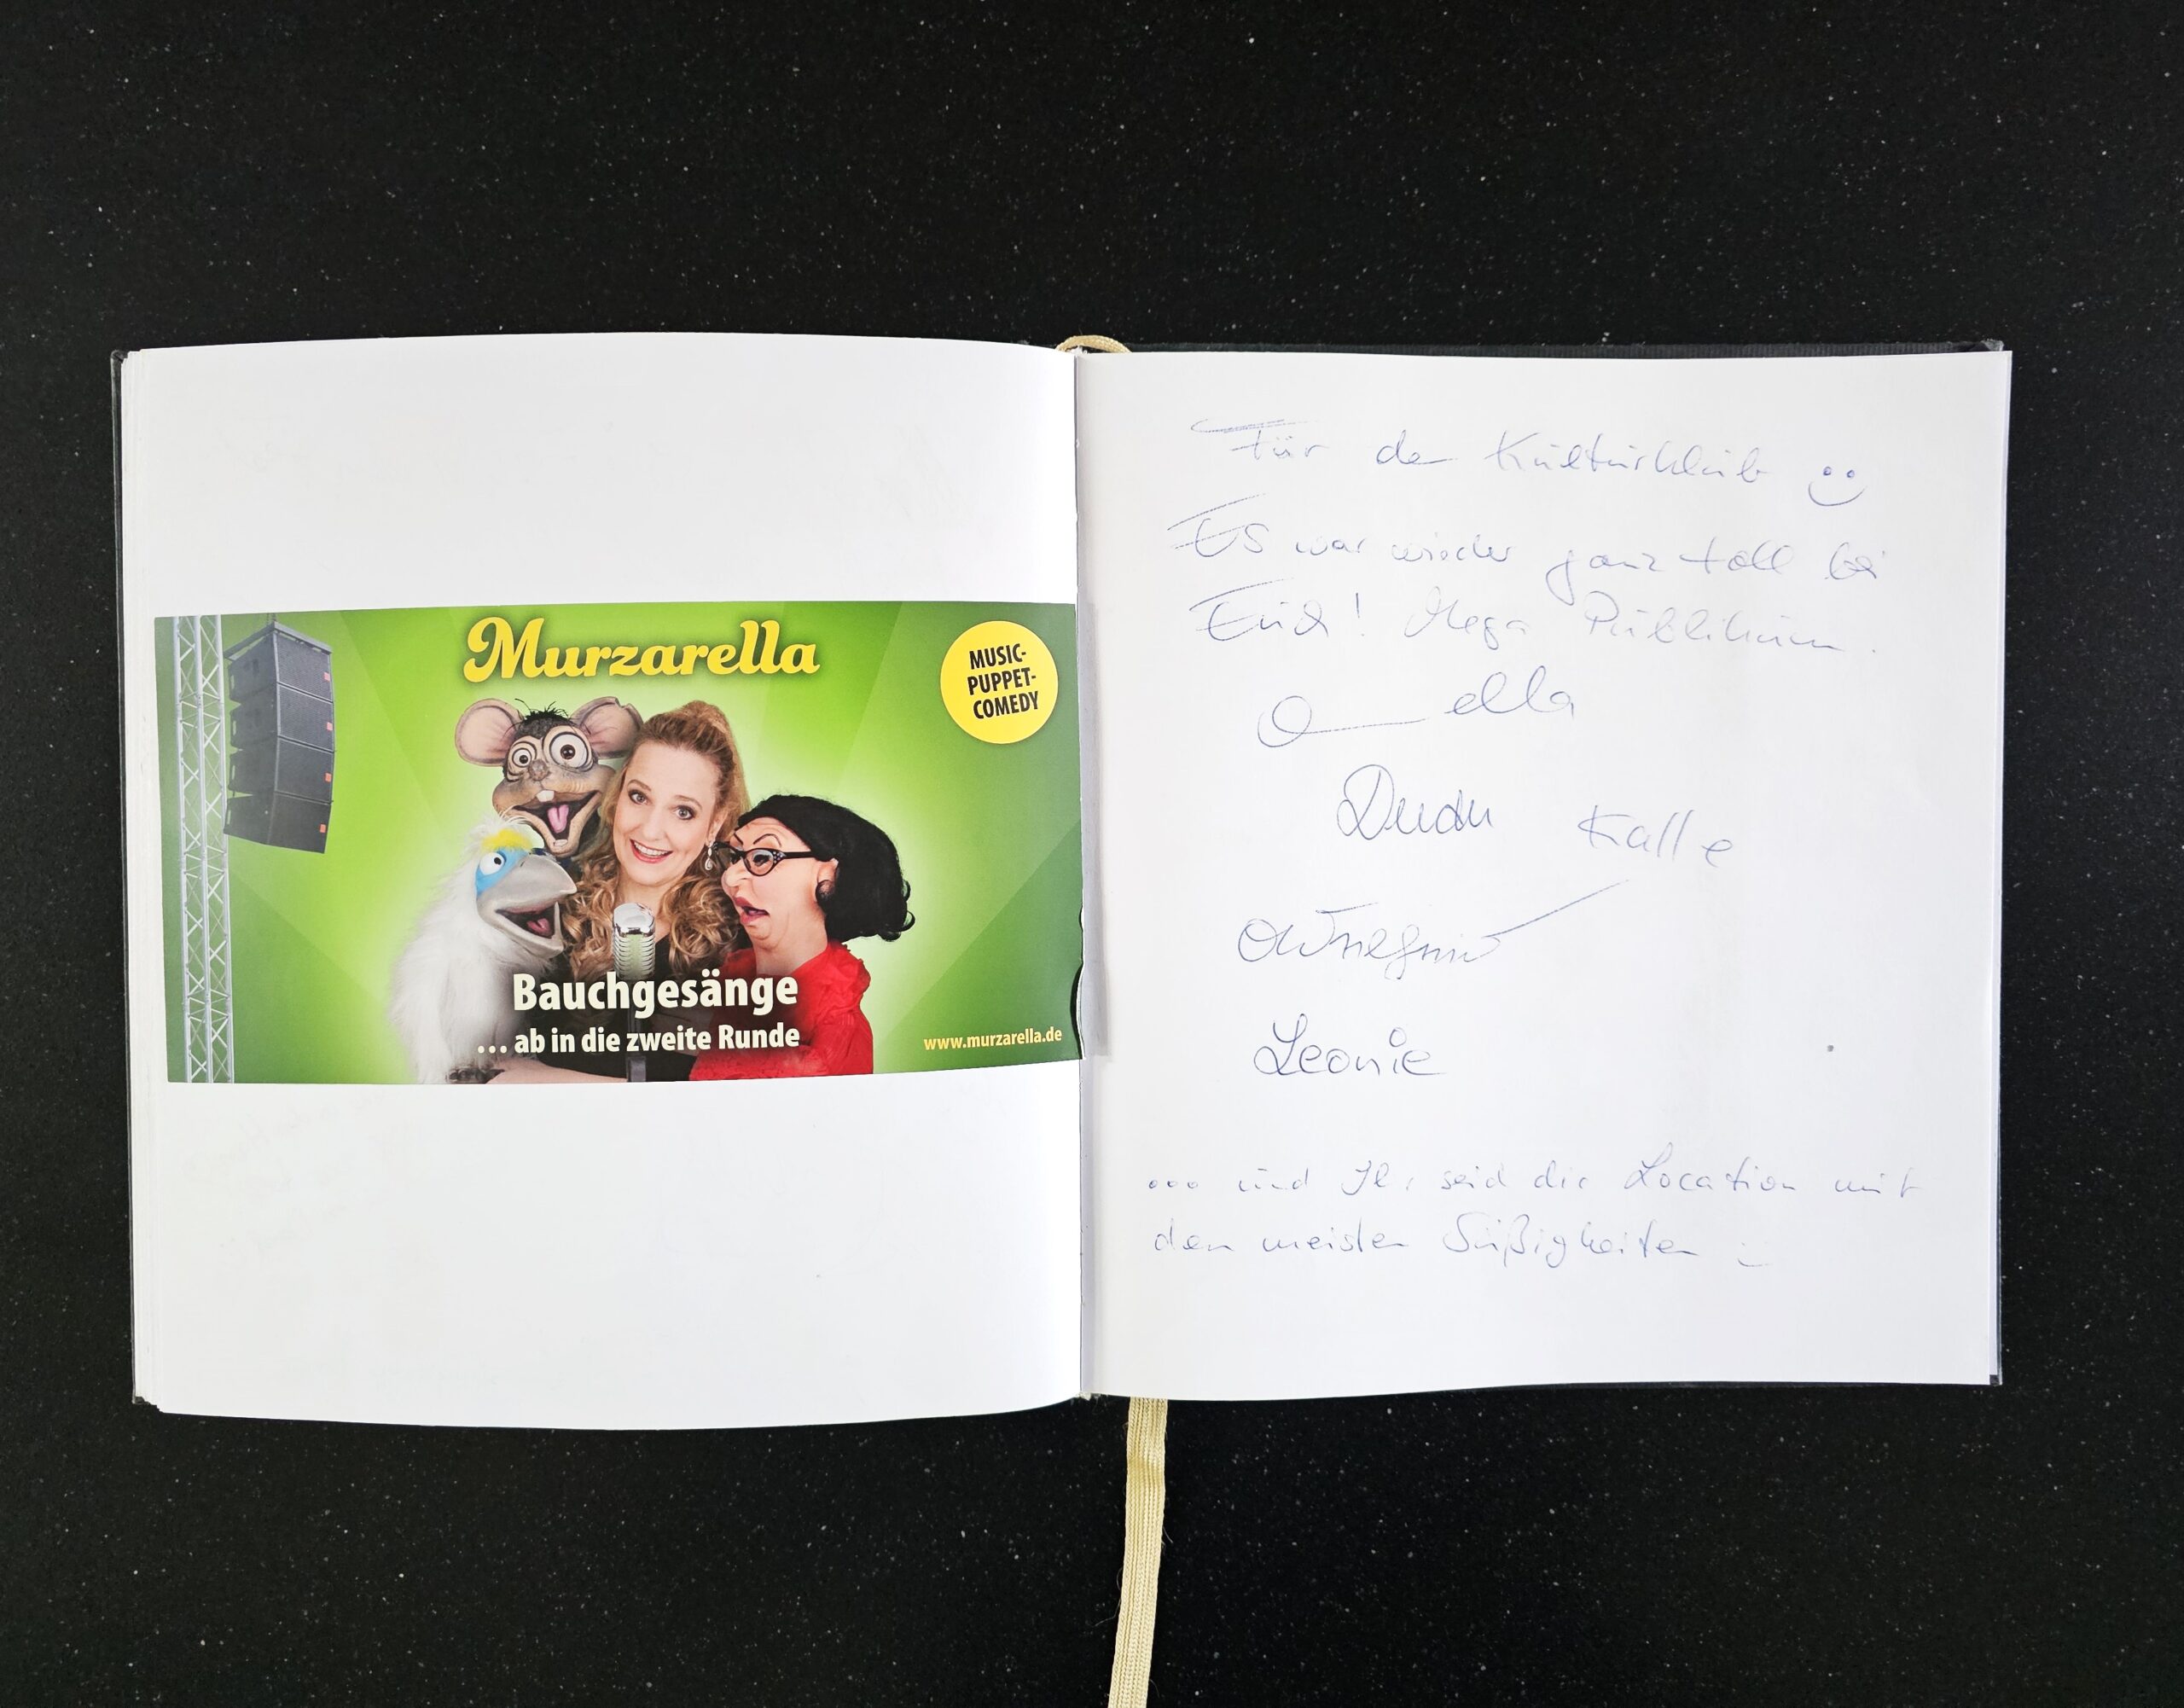 Murzarella
MUSIC-
PUPPET-
COMEDY
Bauchgesänge
... ab in die zweite Runde
www.murzarella.de
Für den Kulturklub
Es war wieder ganz toll bei
Euch! Mega Publikum.
ella
Dudu
Kalle
Leonie
... und Ihr seid die Location mit
den meisten Süßigkeiten